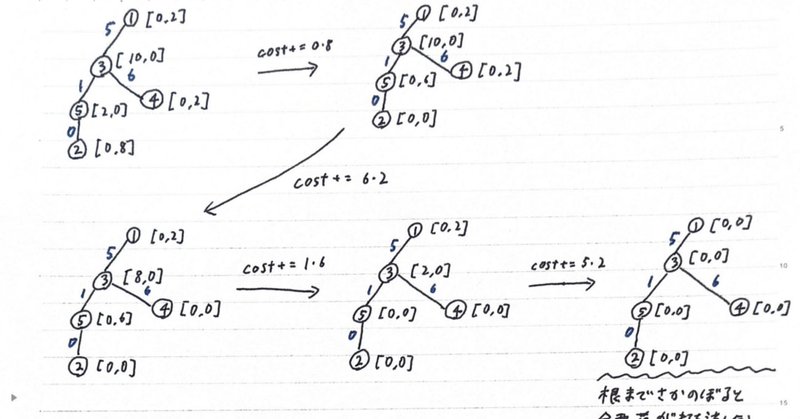 5 ① [0,2]
③ [10,0]
1 6
⑤ [2,0] ④ [0,2]
0
② [0,8]
cost+=0.8
5 ① [0,2]
③ [10,0]
1 6
⑤ [0,6] ④ [0,2]
0
② [0,0]
cost+= 6・2
5 ① [0,2]
③ [8,0]
1 6
⑤ [0,6] ④ [0,0]
0
② [0,0]
cost+= 1・6
5 ① [0,2]
③ [2,0]
1 6
⑤ [0,0] ④ [0,0]
0
② [0,0]
cost+= 5.2
5 ① [0,0]
③ [0,0]
1 6
⑤ [0,0] ④ [0,0]
0
② [0,0]
根までさかのぼると
5
10
15